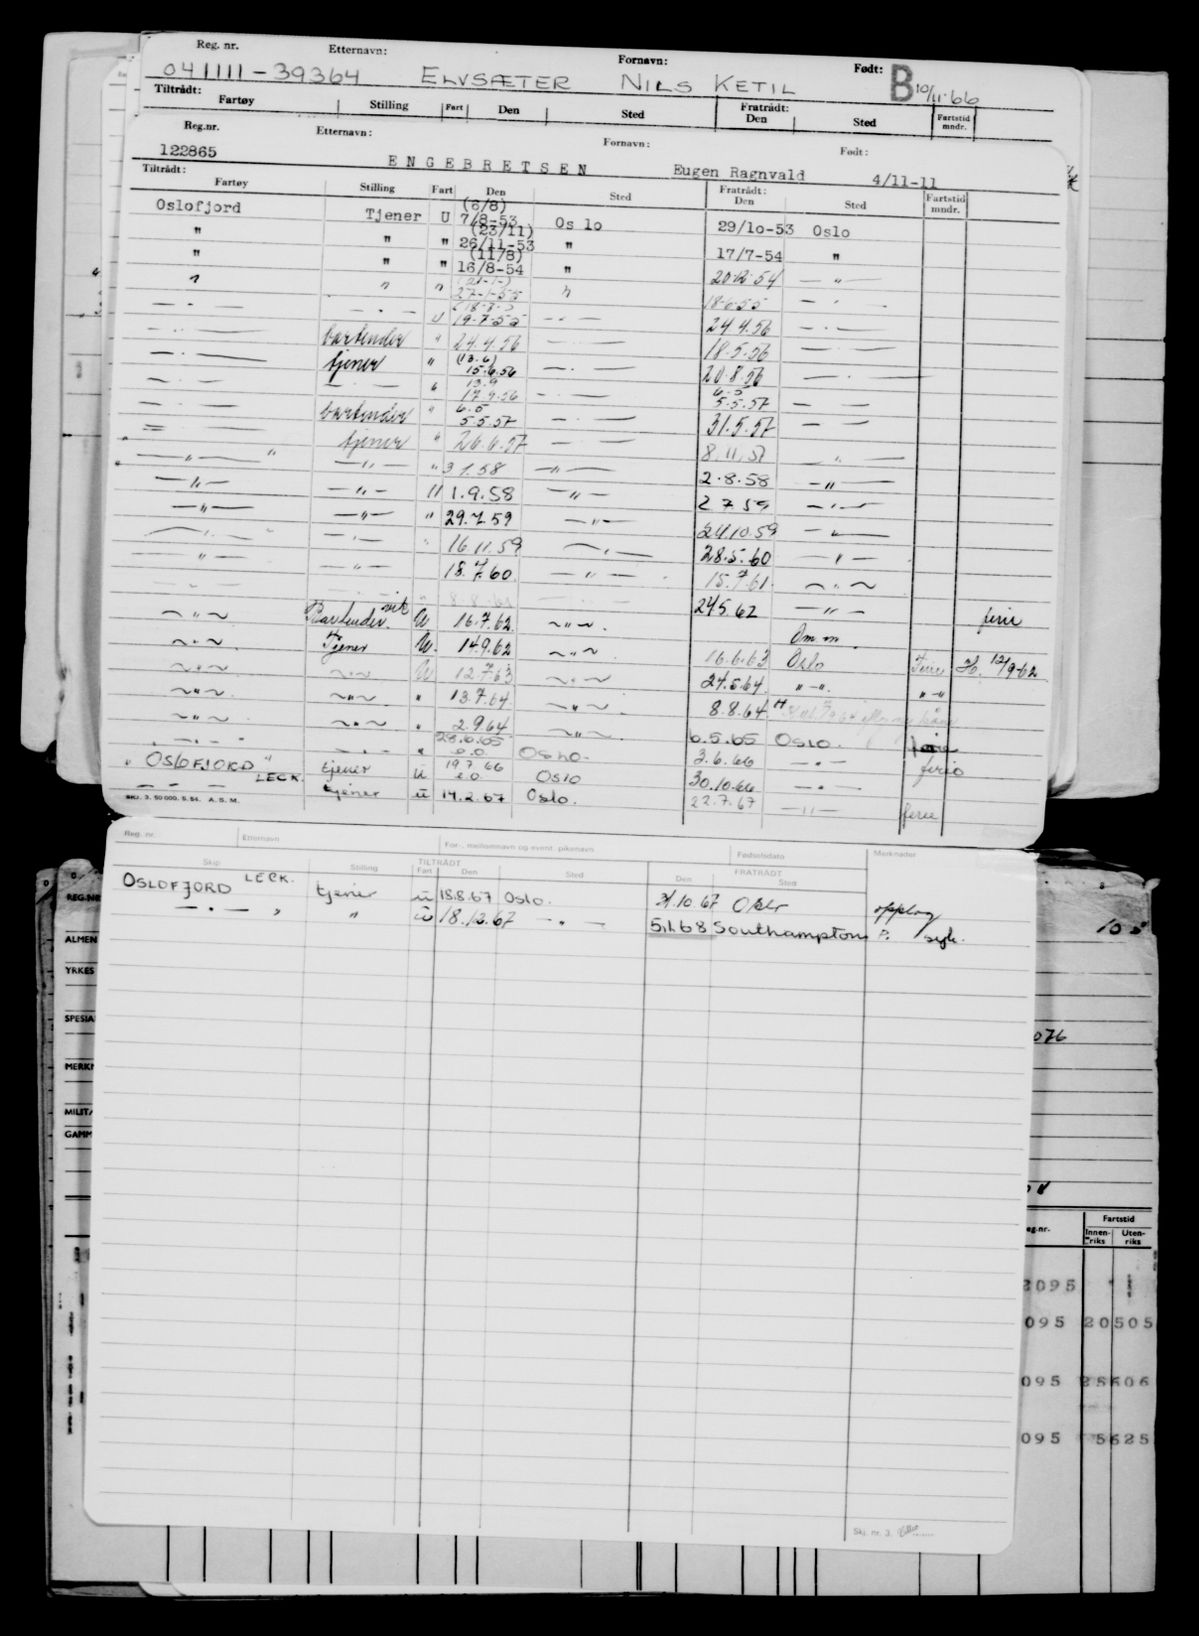 Reg. nr. Etternavn: Fornavn: Født:
041111-39364 ELVSÆTER NILS KETIL B 10/11-66
Tiltrådt: Fratrådt:
Fartøy Stilling Fart Den Sted Den Sted Fartstid mndr.
Reg.nr. Etternavn: Fornavn: Født:
122865 ENGEBRETSEN Eugen Ragnvald 4/11-11
Tiltrådt: Fratrådt:
Fartøy Stilling Fart Den Sted Den Sted Fartstid mndr.
(6/8)
Oslofjord Tjener U 7/8-53 Oslo 29/10-53 Oslo
(23/11)
" " " 26/11-53 " 17/7-54 "
(11/8)
" " " 16/8-54 " 20-12-54 — " —
" " " 27-1-55 " 18-6-55 — " —
— " — — " — U 19-7-55 — " — 24.4.56 — " —
— " — bartender " 24.4.56 — " — 18.5.56 — " —
(13.6)
— " — tjener " 15.6.56 — " — 20.8.56 — " —
13.9 6.5
— " — — " — " 17.9.56 — " — 5.5.57 — " —
6.5
— " — bartender " 5.5.57 — " — 31.5.57 — " —
— " — tjener " 26.6.57 — " — 8.11.57 — " —
— " — — " — " 3.1.58 — " — 2.8.58 — " —
— " — — " — " 1.9.58 — " — 2.7.59 — " —
— " — — " — " 29.7.59 — " — 24.10.59 — " —
— " — — " — " 16.11.59 — " — 28.5.60 — " —
— " — — " — 18.7.60 — " — 15.7.61 — " —
— " — — " — " 8.8.61 — " — 24.5.62 — " — ferie
— " — Bartender vik U 16.7.62 — " — Om.m
— " — Tjener U. 14.9.62 — " — 16.6.63 Oslo Ferie 12/9-62
— " — — " — U 12.7.63 — " — 24.5.64. " —". " —"
— " — — " — " 13.7.64 — " — 8.8.64
— " — — " — " 2.9.64 — " — 6.5.65 OSLO. ferie
— " — — " — " 28.6.65 e.o. OSLO. 3.6.66 — " — ferie
" OSLOFJORD " tjener ü 19.7.66 e.o OSLO 30.10.66 — " —
— " — LECK. tjener ü 14.2.67 Oslo. 22.7.67 — " — ferie
SKJ. 3. 50 000. 5.54. A. S. M.
Reg. nr. Etternavn For-, mellomnavn og event. pikenavn Fødselsdato Merknader
TILTRÅDT FRATRÅDT
Skip Stilling Fart Den Sted Den Sted
OSLOFJORD LECK. tjener ü 18.8.67 Oslo. 31.10.67 Oslo opplag
— " — " " ü 18.12.67 — " — 5.1.68 Southampton P. syk.
Skj. nr. 3.
REG.NR
ALMEN
YRKES
SPESIA
MERKN
MILITÆ
GAMM
10
076
eg.nr. Fartstid
Innenriks Utenriks
2095
095 20505
095 25606
095 5625